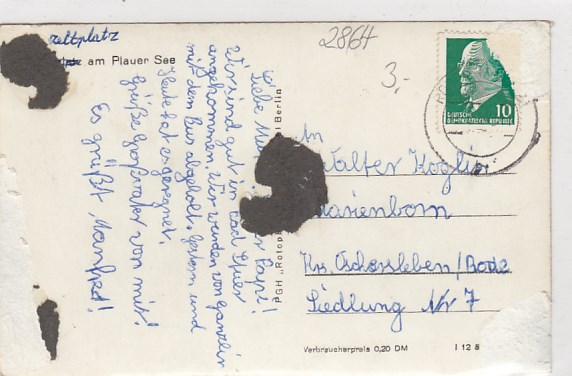 zeltplatz
am Plauer See
2864
3,-
Liebe Mu Papi!
Wir sind gut in Bad
angekommen. Wir werden von Ganzlin
mit dem Bus abgeholt. Gestern und
Heute hat es geregnet.
Grüße Großvater von mir!
Es grüßt, Manfred!
PGH „Rotop l Berlin
DEUTSCHE
DEMOKRATISCHE REPUBLIK
10
An
Walter Koglin
Marienborn
Krs. Oschersleben/Bode
Siedlung Nr 7
Verbraucherpreis 0,20 DM
I 12 5